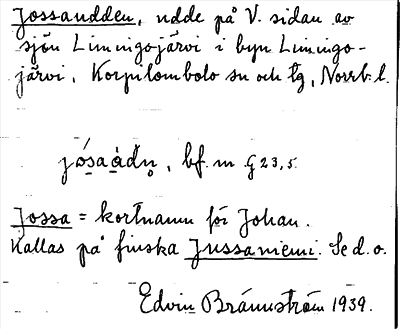 Jossaudden, udde på V. sidan av
sjön Limingojärvi i byn Limingo-
järvi, Korpilombolo sn och tg, Norrb. l.
jósaàdn, bf. m G 23,5.
Jossa = kortnamn för Johan.
Kallas på finska Jussaniemi. Se d. o.
Edvin Brännström 1939.